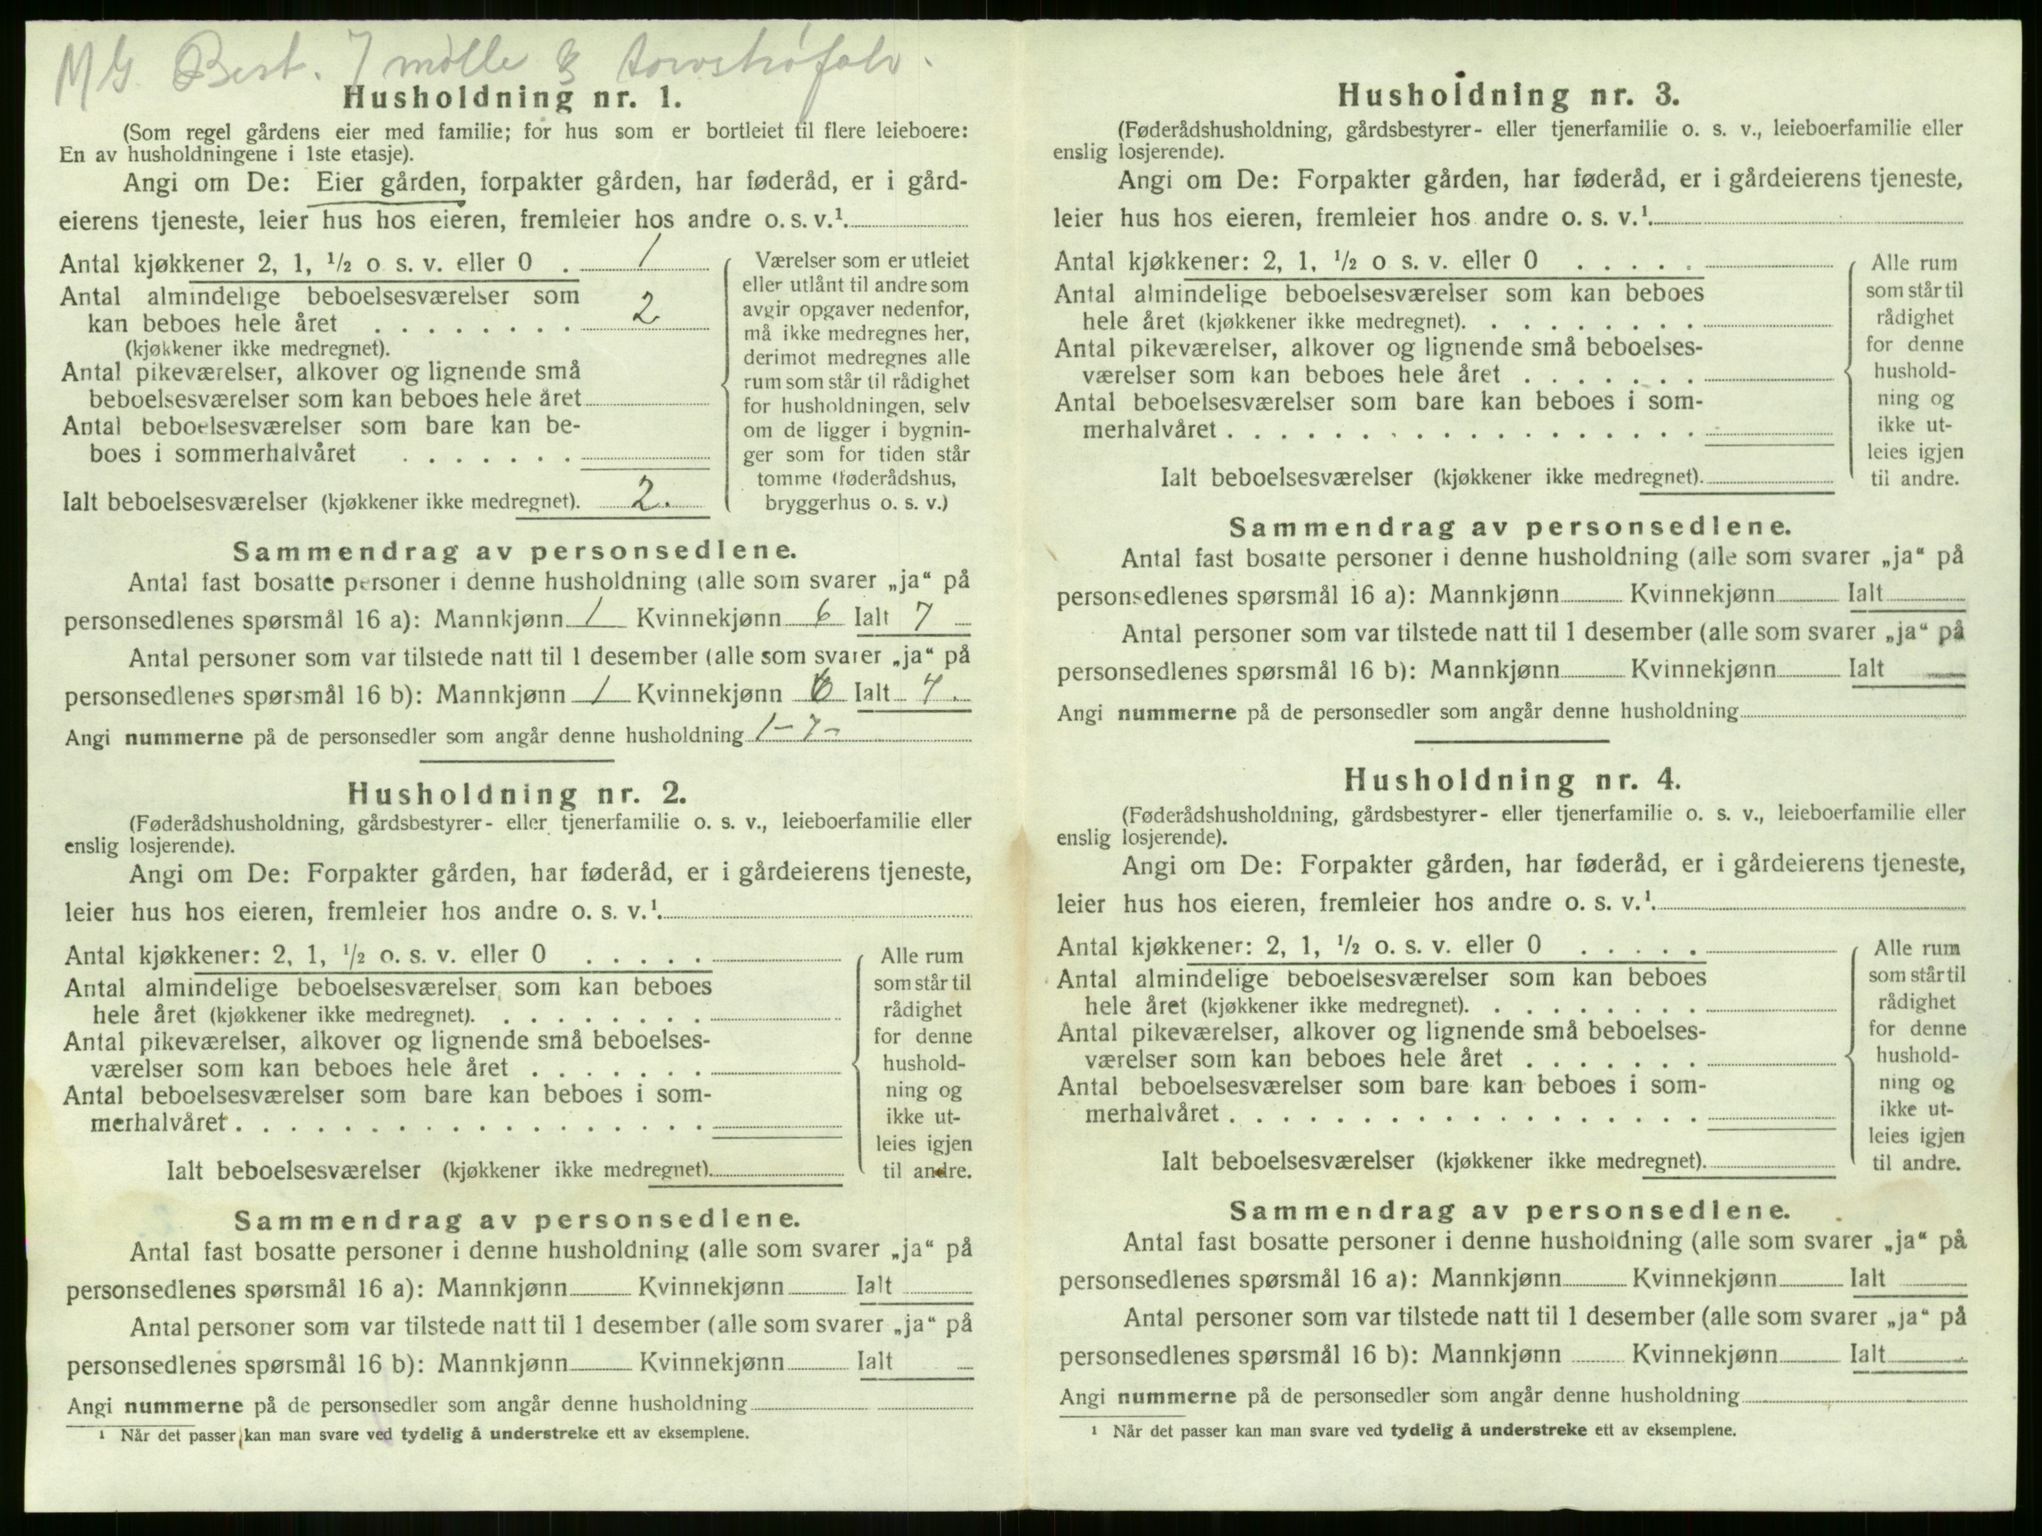 MG. Best. I mølle & torvstrøfabr.
Husholdning nr. 1.
(Som regel gårdens eier med familie; for hus som er bortleiet til flere leieboere:
En av husholdningene i 1ste etasje).
Angi om De: Eier gården, forpakter gården, har føderåd, er i gård-
eierens tjeneste, leier hus hos eieren, fremleier hos andre o. s. v.¹.
Antal kjøkkener 2, 1, ½ o s. v. eller 0 . 1
Antal almindelige beboelsesværelser som
kan beboes hele året . . . . . . . . 2
(kjøkkener ikke medregnet).
Antal pikeværelser, alkover og lignende små
beboelsesværelser som kan beboes hele året
Antal beboelsesværelser som bare kan be-
boes i sommerhalvåret . . . . . . .
Ialt beboelsesværelser (kjøkkener ikke medregnet). 2.
Værelser som er utleiet
eller utlånt til andre som
avgir opgaver nedenfor,
må ikke medregnes her,
derimot medregnes alle
rum som står til rådighet
for husholdningen, selv
om de ligger i bygnin-
ger som for tiden står
tomme (føderådshus,
bryggerhus o. s. v.)
Sammendrag av personsedlene.
Antal fast bosatte personer i denne husholdning (alle som svarer „ja“ på
personsedlenes spørsmål 16 a): Mannkjønn 1 Kvinnekjønn 6 Ialt 7
Antal personer som var tilstede natt til 1 desember (alle som svarer „ja“ på
personsedlenes spørsmål 16 b): Mannkjønn 1 Kvinnekjønn 6 Ialt 7.
Angi nummerne på de personsedler som angår denne husholdning 1-7-
Husholdning nr. 2.
(Føderådshusholdning, gårdsbestyrer- eller tjenerfamilie o. s. v., leieboerfamilie eller
enslig losjerende).
Angi om De: Forpakter gården, har føderåd, er i gårdeierens tjeneste,
leier hus hos eieren, fremleier hos andre o. s. v.¹.
Antal kjøkkener: 2, 1, ½ o. s. v. eller 0 . . . . .
Antal almindelige beboelsesværelser som kan beboes
hele året (kjøkkener ikke medregnet). . . . . . . . .
Antal pikeværelser, alkover og lignende små beboelses-
værelser som kan beboes hele året . . . . . . .
Antal beboelsesværelser som bare kan beboes i som-
merhalvåret . . . . . . . . . . . . . . . . . .
Ialt beboelsesværelser (kjøkkener ikke medregnet).
Alle rum
som står til
rådighet
for denne
hushold-
ning og
ikke ut-
leies igjen
til andre.
Sammendrag av personsedlene.
Antal fast bosatte personer i denne husholdning (alle som svarer „ja“ på
personsedlenes spørsmål 16 a): Mannkjønn Kvinnekjønn Ialt
Antal personer som var tilstede natt til 1 desember (alle som svarer „ja“ på
personsedlenes spørsmål 16 b): Mannkjønn Kvinnekjønn Ialt
Angi nummerne på de personsedler som angår denne husholdning
¹ Når det passer kan man svare ved tydelig å understreke ett av eksemplene.
Husholdning nr. 3.
(Føderådshusholdning, gårdsbestyrer- eller tjenerfamilie o. s. v., leieboerfamilie eller
enslig losjerende).
Angi om De: Forpakter gården, har føderåd, er i gårdeierens tjeneste,
leier hus hos eieren, fremleier hos andre o. s. v.¹.
Antal kjøkkener: 2, 1, ½ o s. v. eller 0 . . . . .
Antal almindelige beboelsesværelser som kan beboes
hele året (kjøkkener ikke medregnet). . . . . . . . .
Antal pikeværelser, alkover og lignende små beboelses-
værelser som kan beboes hele året . . . . . . .
Antal beboelsesværelser som bare kan beboes i som-
merhalvåret . . . . . . . . . . . . . . . . . .
Ialt beboelsesværelser (kjøkkener ikke medregnet).
Alle rum
som står til
rådighet
for denne
hushold-
ning og
ikke ut-
leies igjen
til andre.
Sammendrag av personsedlene.
Antal fast bosatte personer i denne husholdning (alle som svarer „ja“ på
personsedlenes spørsmål 16 a): Mannkjønn Kvinnekjønn Ialt
Antal personer som var tilstede natt til 1 desember (alle som svarer „ja“ på
personsedlenes spørsmål 16 b): Mannkjønn Kvinnekjønn Ialt
Angi nummerne på de personsedler som angår denne husholdning
Husholdning nr. 4.
(Føderådshusholdning, gårdsbestyrer- eller tjenerfamilie o. s. v., leieboerfamilie eller
enslig losjerende).
Angi om De: Forpakter gården, har føderåd, er i gårdeierens tjeneste,
leier hus hos eieren, fremleier hos andre o. s. v.¹.
Antal kjøkkener: 2, 1, ½ o. s. v. eller 0 . . . . .
Antal almindelige beboelsesværelser som kan beboes
hele året (kjøkkener ikke medregnet). . . . . . . . .
Antal pikeværelser, alkover og lignende små beboelses-
værelser som kan beboes hele året . . . . . . .
Antal beboelsesværelser som bare kan beboes i som-
merhalvåret . . . . . . . . . . . . . . . . . .
Ialt beboelsesværelser (kjøkkener ikke medregnet).
Alle rum
som står til
rådighet
for denne
hushold-
ning og
ikke ut-
leies igjen
til andre.
Sammendrag av personsedlene.
Antal fast bosatte personer i denne husholdning (alle som svarer „ja“ på
personsedlenes spørsmål 16 a): Mannkjønn Kvinnekjønn Ialt
Antal personer som var tilstede natt til 1 desember (alle som svarer „ja“ på
personsedlenes spørsmål 16 b): Mannkjønn Kvinnekjønn Ialt
Angi nummerne på de personsedler som angår denne husholdning
¹ Når det passer kan man svare ved tydelig å understreke ett av eksemplene.